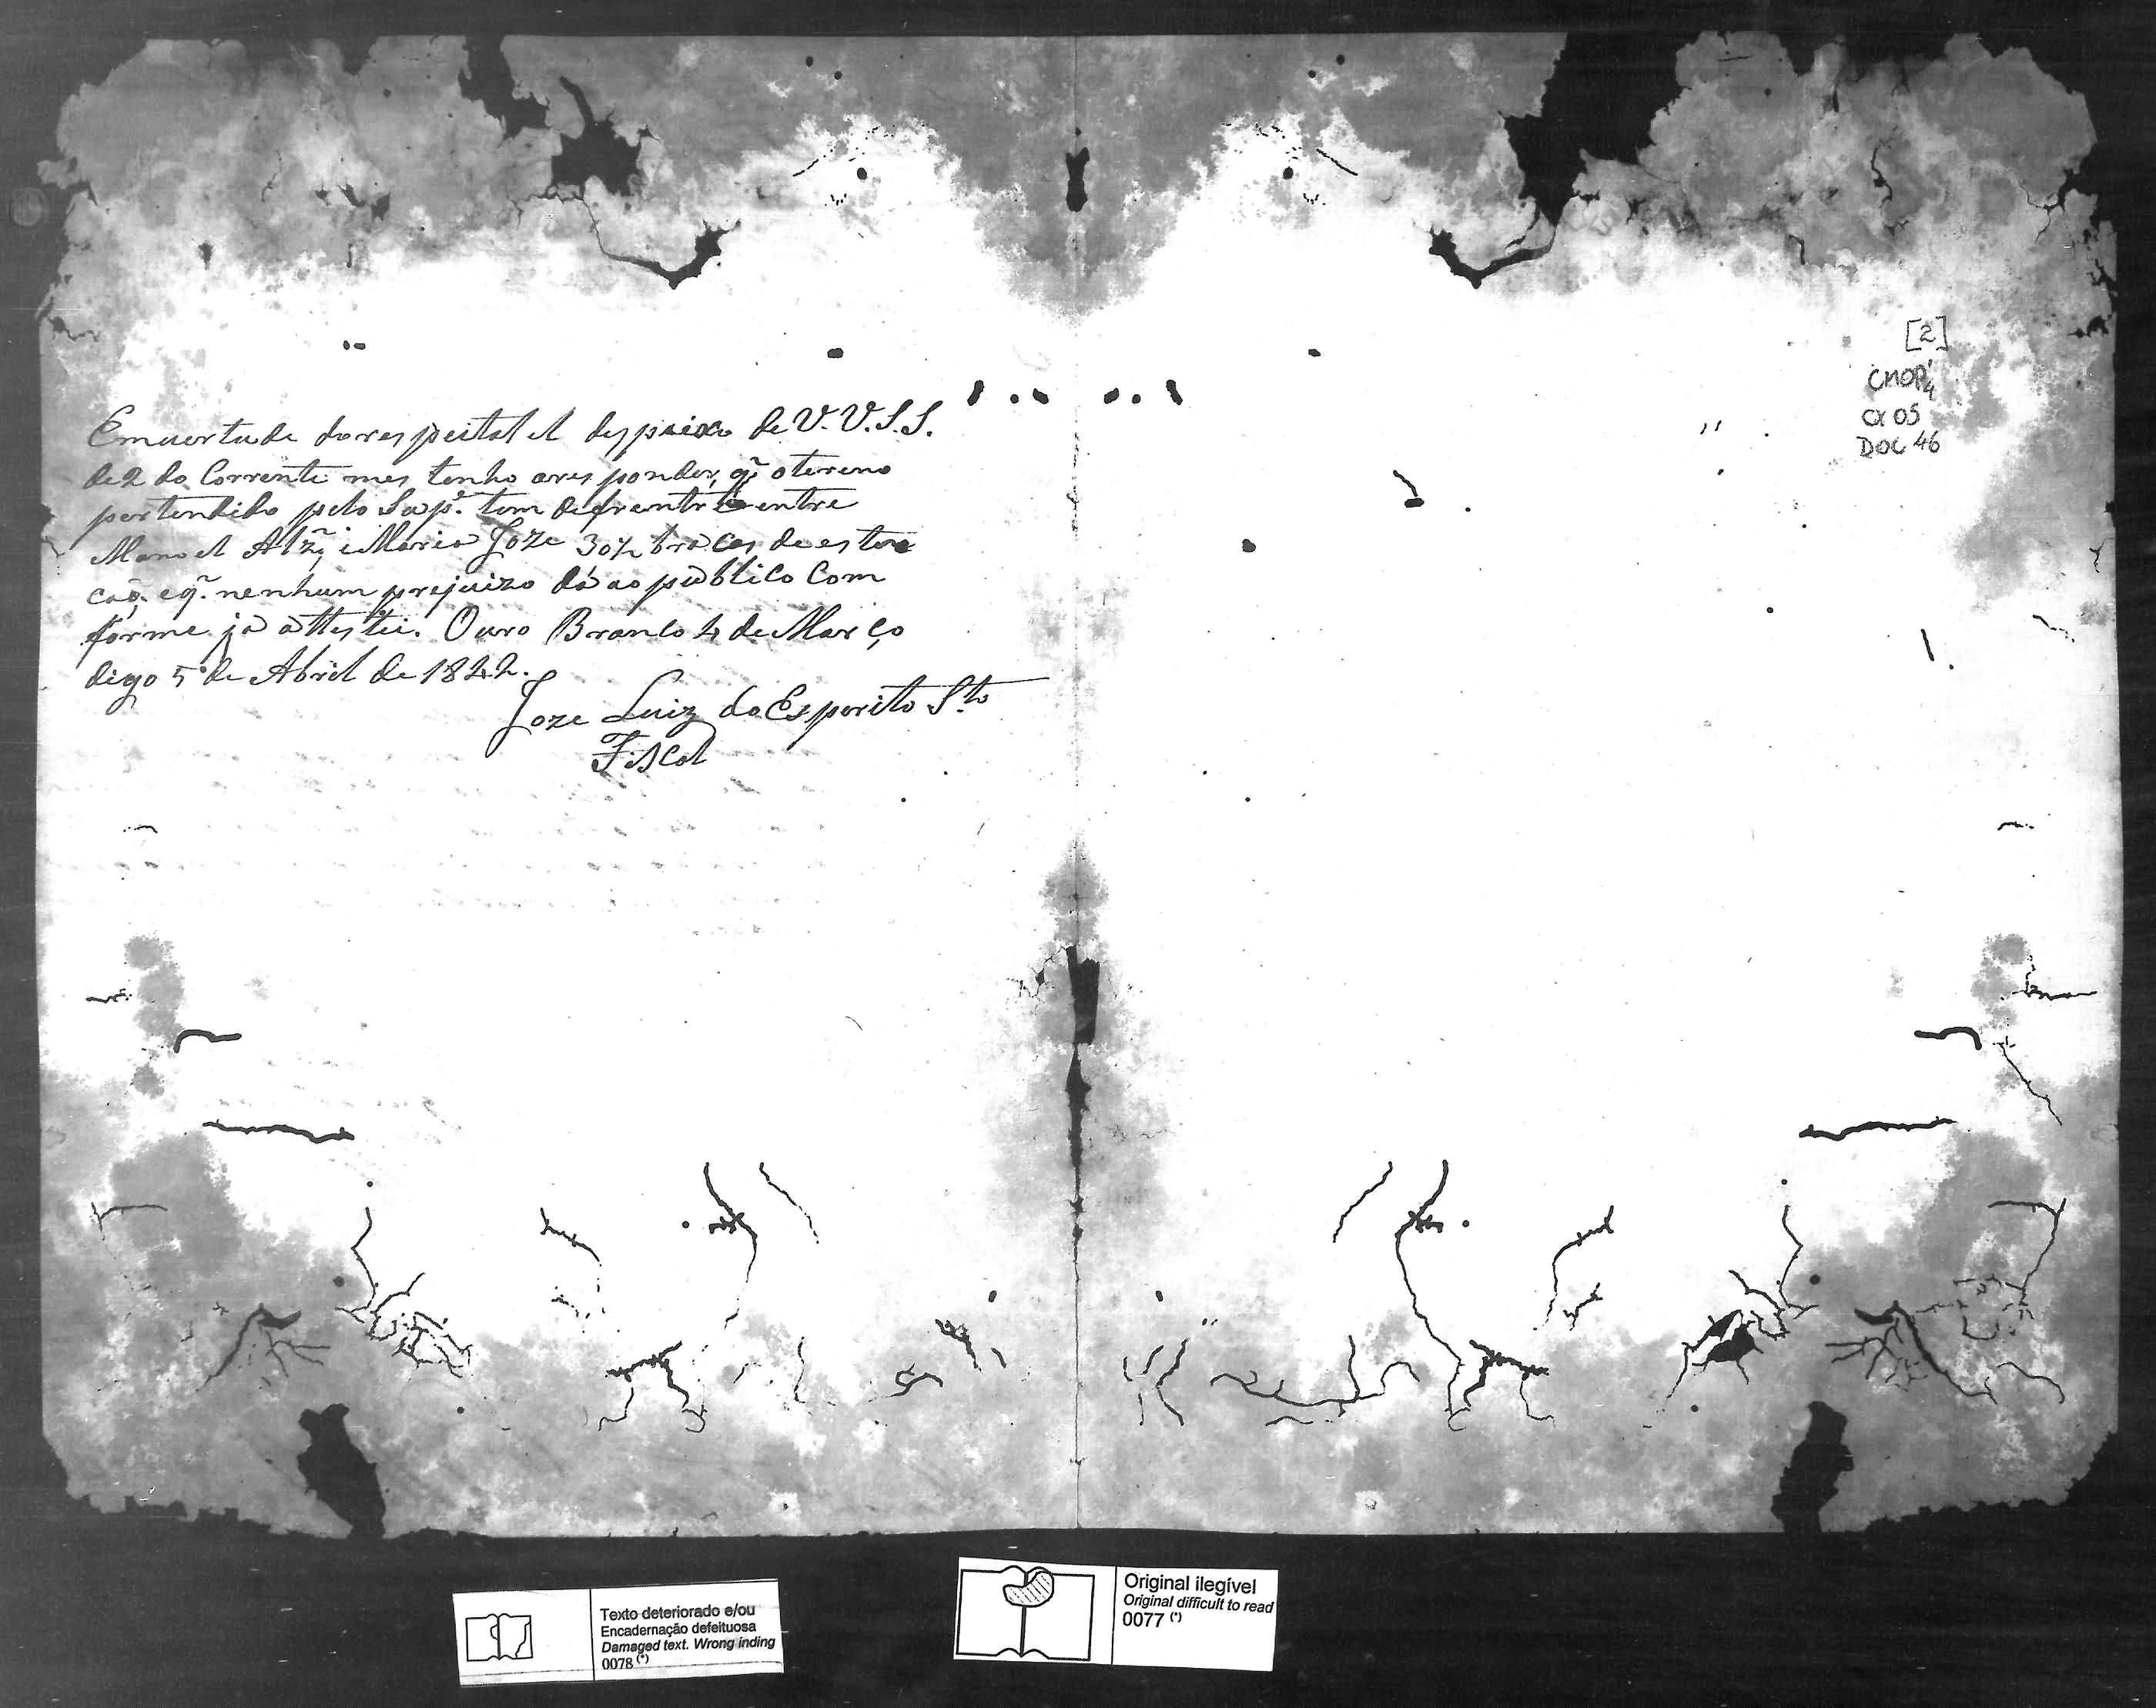 Emvertude do respeitalel despaixo de V. V. S. S.
de 2 do Corrente mes tenho aresponder, q̃ o tereno
pertendido pelo Sup.e tem defrentre entre
Manoel Alz̃ i Maria Joze 30½ braças de esten
caõ. e q̃. nenhum prejuizo dá ao publico Com
forme já attestei. Ouro Branco 4 de Março
digo 5 de Abril de 1842.
Joze Luiz do Esperito S.to
Fiscal
[2]
CMOP
CX 05
DOC 46
Texto deteriorado e/ou
Encadernação defeituosa
Damaged text. Wrong inding
0078 (*)
Original ilegível
Original difficult to read
0077 (*)